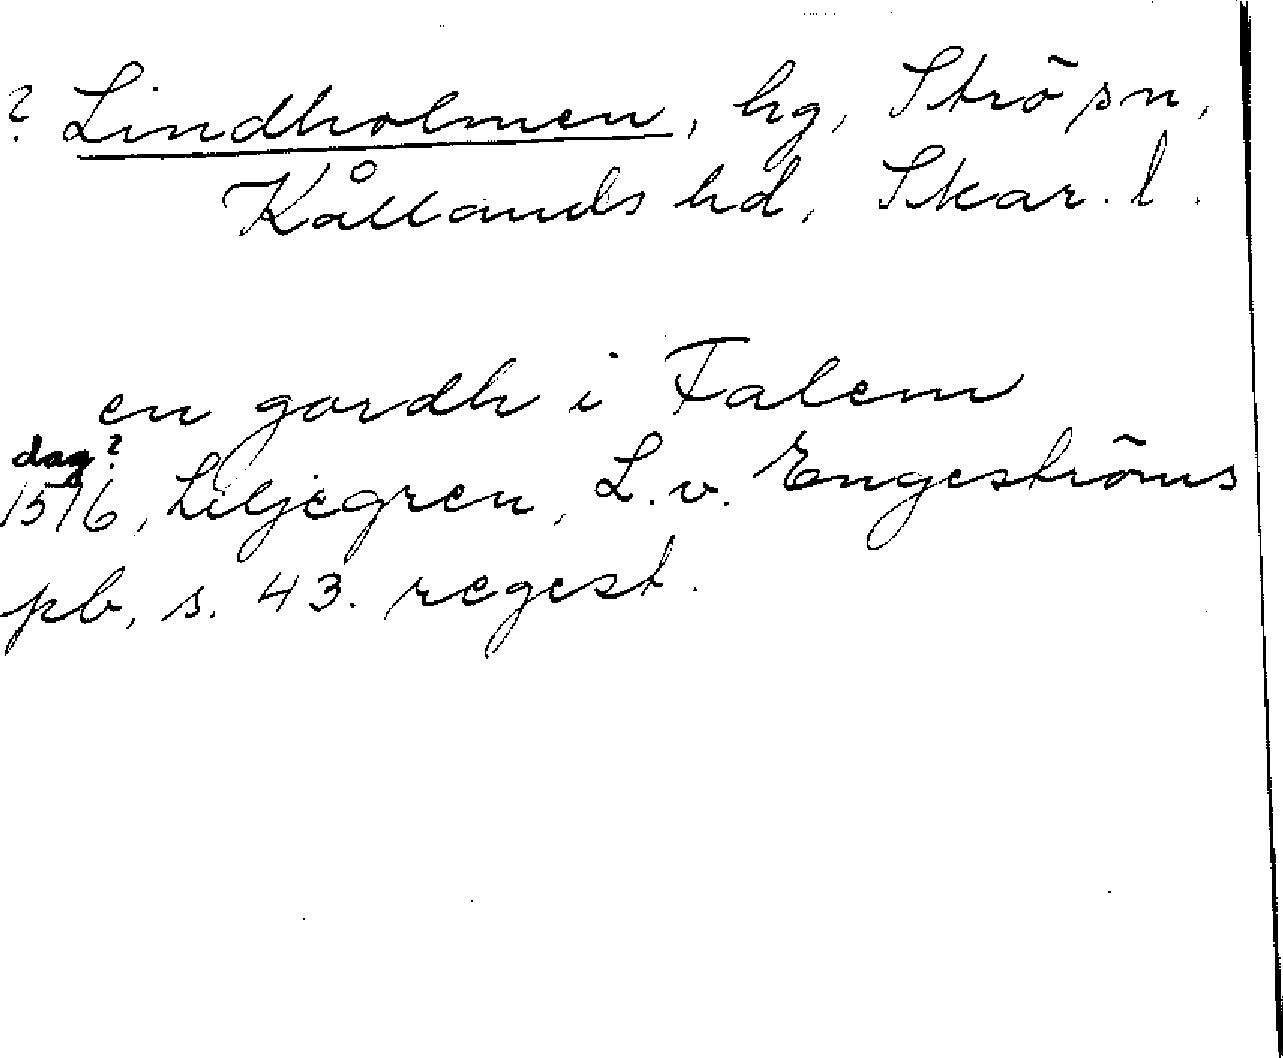 ? Lindholmen, hg, Strö sn,
Kållands hd, Skar. l.
en gordh i Falem
dag?
1516, Liljegren, L. v. Engeströms
pb, s. 43. regest.